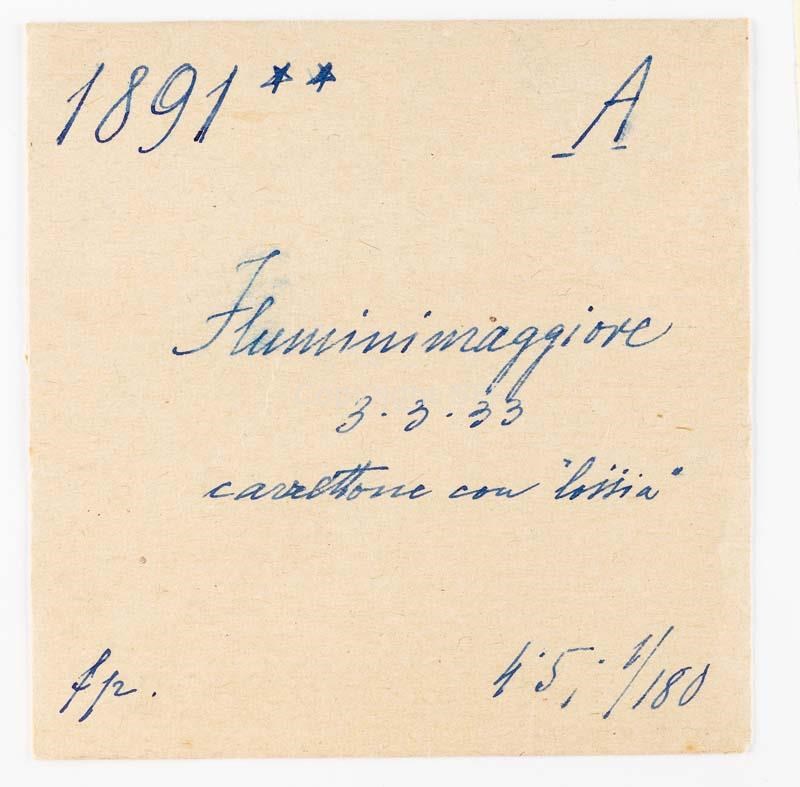 1891** A
Fluminimaggiore
3.3.33
carrettone con "lossia"
fp.
4·5; 1/180